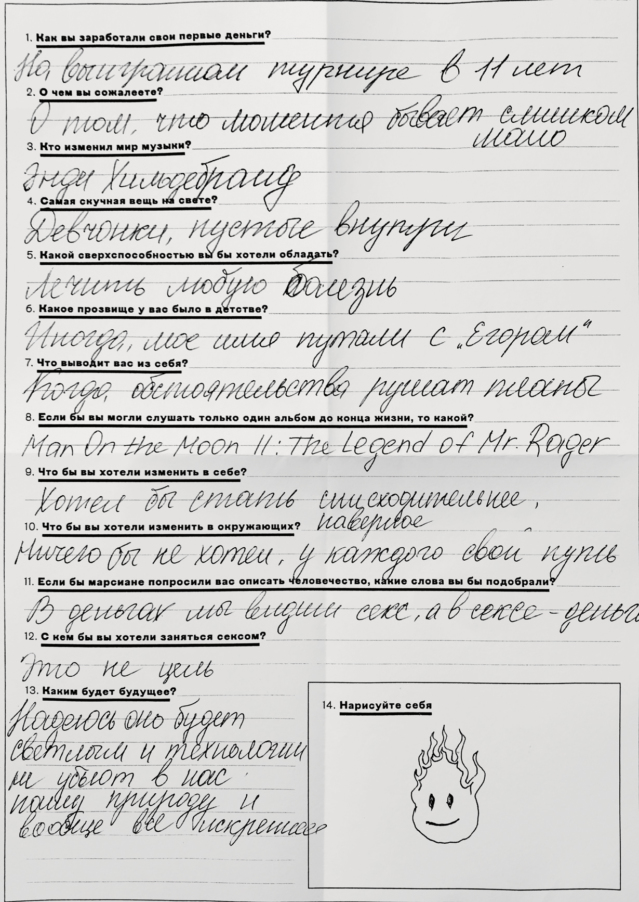 1. Как вы заработали свои первые деньги?
На выигранном турнире в 11 лет
2. О чем вы сожалеете?
О том, что мошення бывает слишком
мало
3. Кто изменил мир музыки?
Энди Хильдебранд
4. Самая скучная вещь на свете?
Девчонки, пустые внутри
5. Какой сверхспособностью вы бы хотели обладать?
Лечить любую болезнь
6. Какое прозвище у вас было в детстве?
Иногда, мое имя путали с „Егором“
7. Что выводит вас из себя?
Когда обстоятельства рушат планы
8. Если бы вы могли слушать только один альбом до конца жизни, то какой?
Man On the Moon II: The Legend of Mr. Rager
9. Что бы вы хотели изменить в себе?
Хотел бы стать снисходительнее,
наверное
10. Что бы вы хотели изменить в окружающих?
Ничего бы не хотел, у каждого свой путь
11. Если бы марсиане попросили вас описать человечество, какие слова вы бы подобрали?
В деньгах мы видим секс, а в сексе - деньги
12. С кем бы вы хотели заняться сексом?
Это не цель
13. Каким будет будущее?
Надеюсь оно будет
светлым и технологии
не убьют в нас
нашу природу и
вообще все искреннее
14. Нарисуйте себя